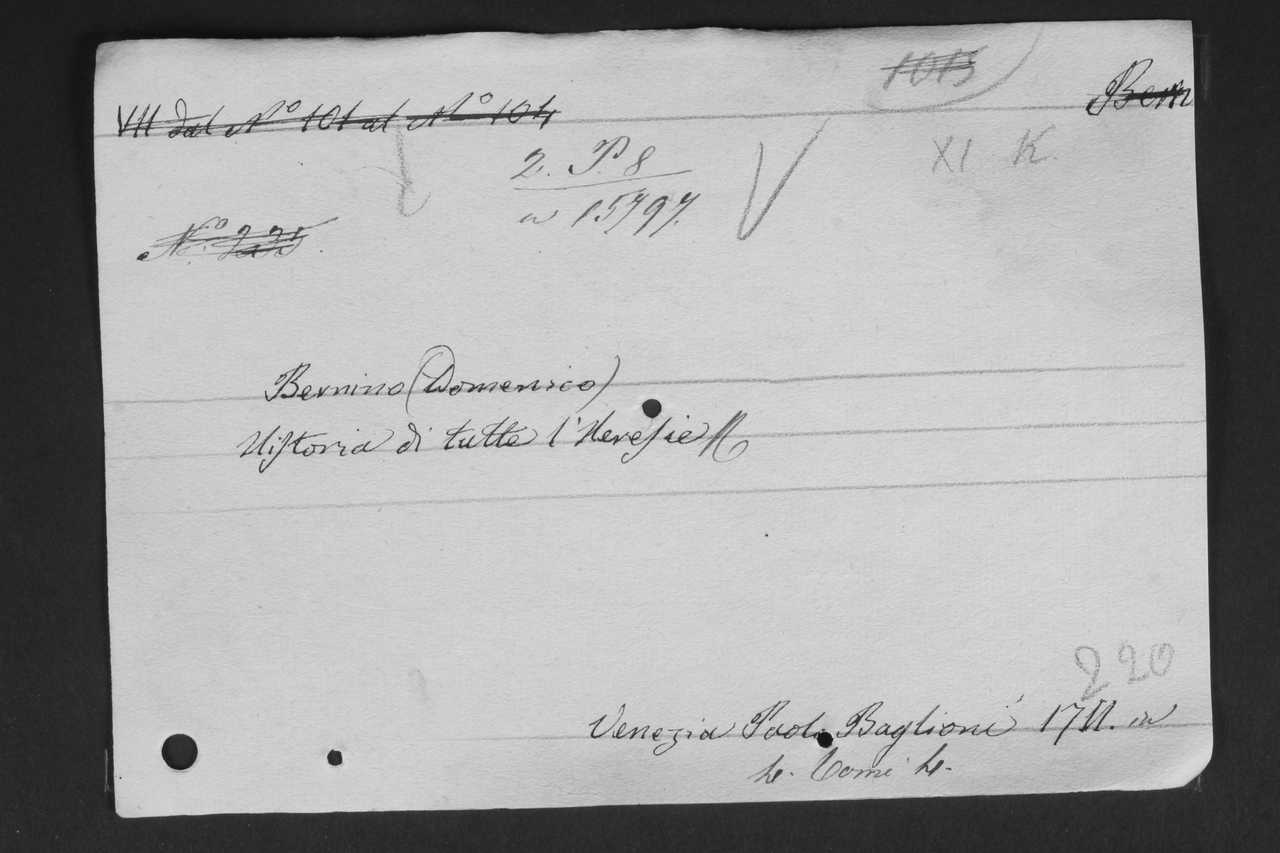 1015
Bern
VII dal N° 101 al N° 104
2. P. 8
XI K.
in 15797.
N° 225
Bernino (Domenico)
Historia di tutte l'Heresie
220
Venezia Paolo Baglioni 1711. in
4. Tomi 4.